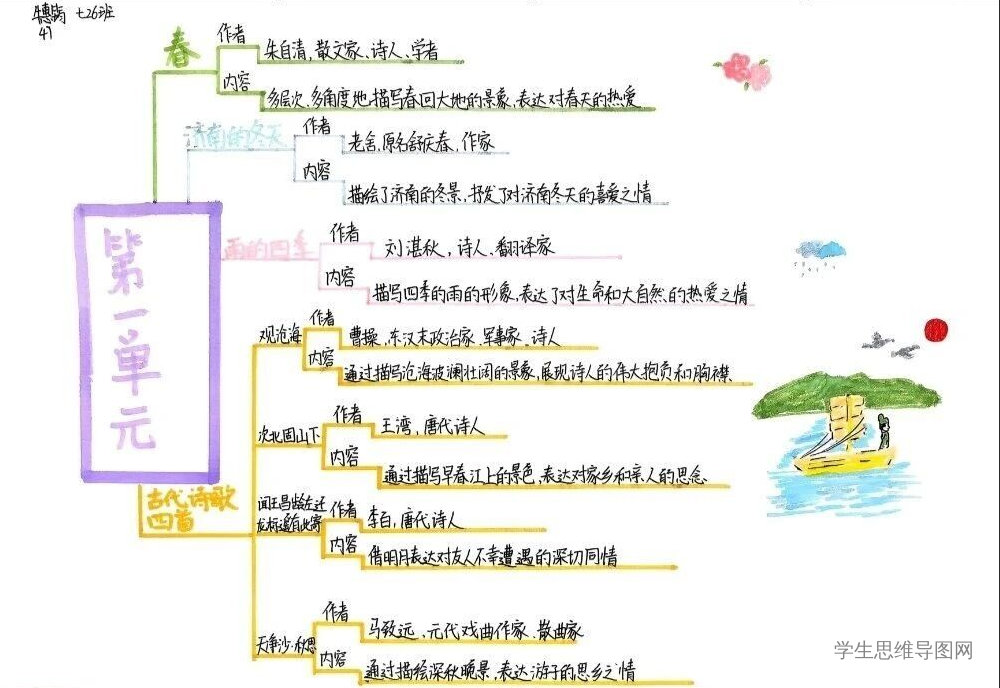 七26班
41
第一单元
春
作者
朱自清,散文家、诗人、学者
内容
多层次、多角度地描写春回大地的景象,表达对春天的热爱
济南的冬天
作者
老舍,原名舒庆春,作家
内容
描绘了济南的冬景,抒发了对济南冬天的喜爱之情
雨的四季
作者
刘湛秋,诗人、翻译家
内容
描写四季的雨的形象,表达了对生命和大自然的热爱之情
古代诗歌
四首
观沧海
作者
曹操、东汉末政治家、军事家、诗人
内容
通过描写沧海波澜壮阔的景象,展现诗人的伟大抱负和胸襟
次北固山下
作者
王湾,唐代诗人
内容
通过描写早春江上的景色,表达对家乡和亲人的思念
闻王昌龄左迁
龙标遥有此寄
作者
李白,唐代诗人
内容
借明月表达对友人不幸遭遇的深切同情
天净沙·秋思
作者
马致远、元代戏曲作家、散曲家
内容
通过描绘深秋晚景,表达游子的思乡之情
学生思维导图网